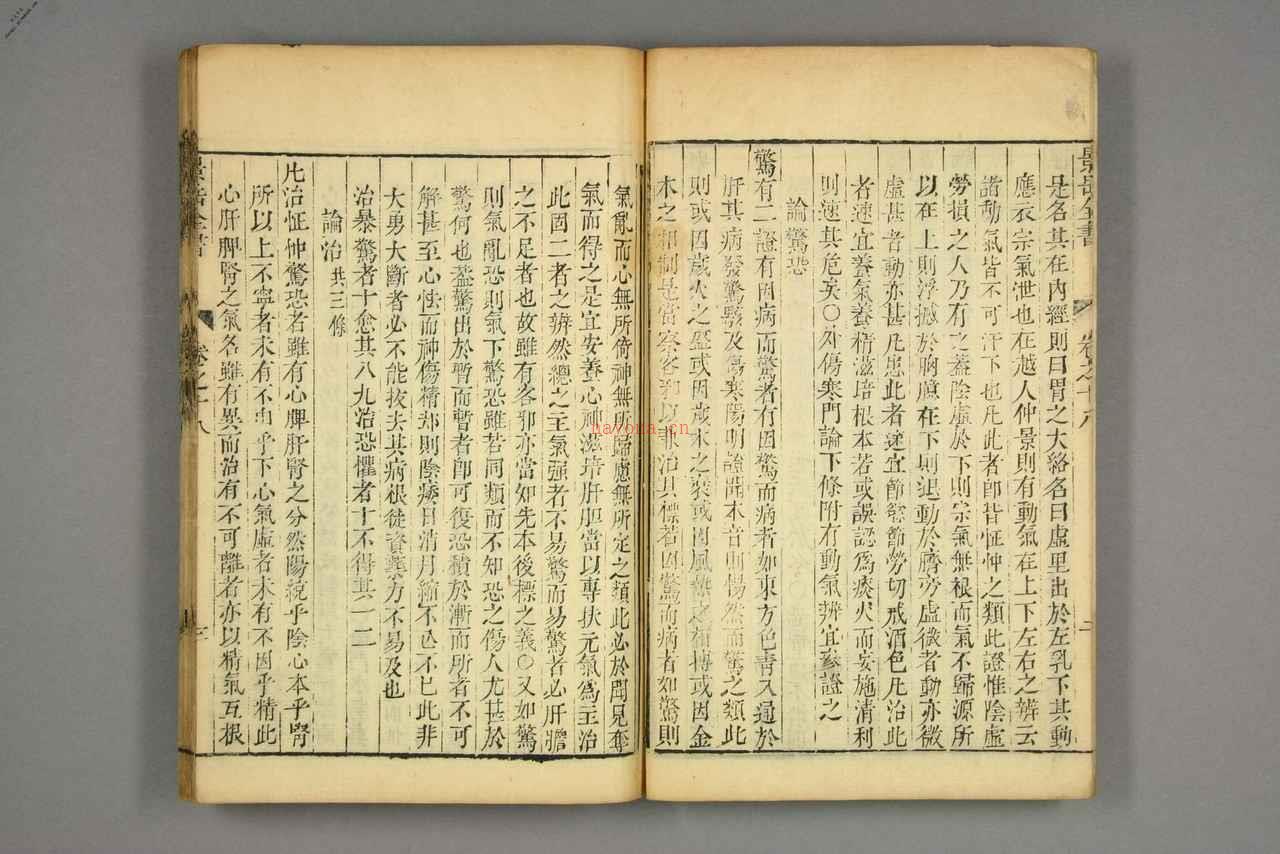 景岳全書 卷之十八 二
是各其在內經則曰胃之大絡名曰虛里出於左乳下其動
應衣宗氣泄也在越人仲景則有動氣在上下左右之辨云
諸動氣皆不可汗下也凡此者卽皆怔忡之類此證惟陰虛
勞損之人乃有之蓋陰虛於下則宗氣無根而氣不歸源所
以在上則浮撼於胸臆在下則振動於臍旁虛微者動亦微
虛甚者動亦甚凡患此者速宜節慾節勞切戒酒色凡治此
者速宜養氣養精滋培根本若或誤認爲痰火而妄施清利
則速其危矣○外傷寒門論下條附有動氣辨宜參證之
論驚恐
驚有二證有因病而驚者有因驚而病者如東方色青入通於
肝其病發驚駭及傷寒陽明證聞木音則惕然而驚之類此
則或因歲火之盛或因歲木之衰或因風熱之相搏或因金
木之相制是當察客邪以兼治其標若因驚而病者如驚則
氣亂而心無所倚神無所歸慮無所定之類此必於聞見奪
氣而得之是宜安養心神滋培肝胆當以專扶元氣爲主治
此固二者之辨然總之主氣强者不易驚而易驚者必肝膽
之不足者也故雖有客邪亦當知先本後標之義○又如驚
則氣亂恐則氣下驚恐雖若同類而不知恐之傷人尤甚於
驚何也蓋驚出於暫而暫者卽可復恐積於漸而所者不可
解甚至心怯而神傷精却則陰痿日消月縮不亡不已此非
大勇大斷者必不能拔去其病根徒資藥力不易及也
治暴驚者十愈其八九治恐懼者十不得其一二
論治 共三條
凡治怔忡驚恐者雖有心脾肝腎之分然陽統乎陰心本乎腎
所以上不寧者未有不由乎下心氣虛者未有不因乎精此
心肝脾腎之氣各雖有異而治有不可離者亦以精氣互根
景岳全書 卷之十八 三
nayona.cn